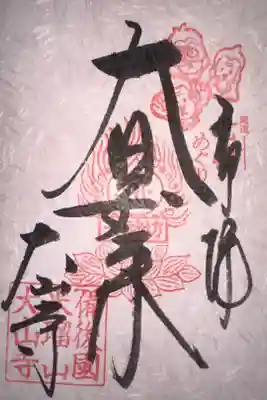 奉拝
めぐり
大日如来
大山寺
備後國
瑠山
大山寺